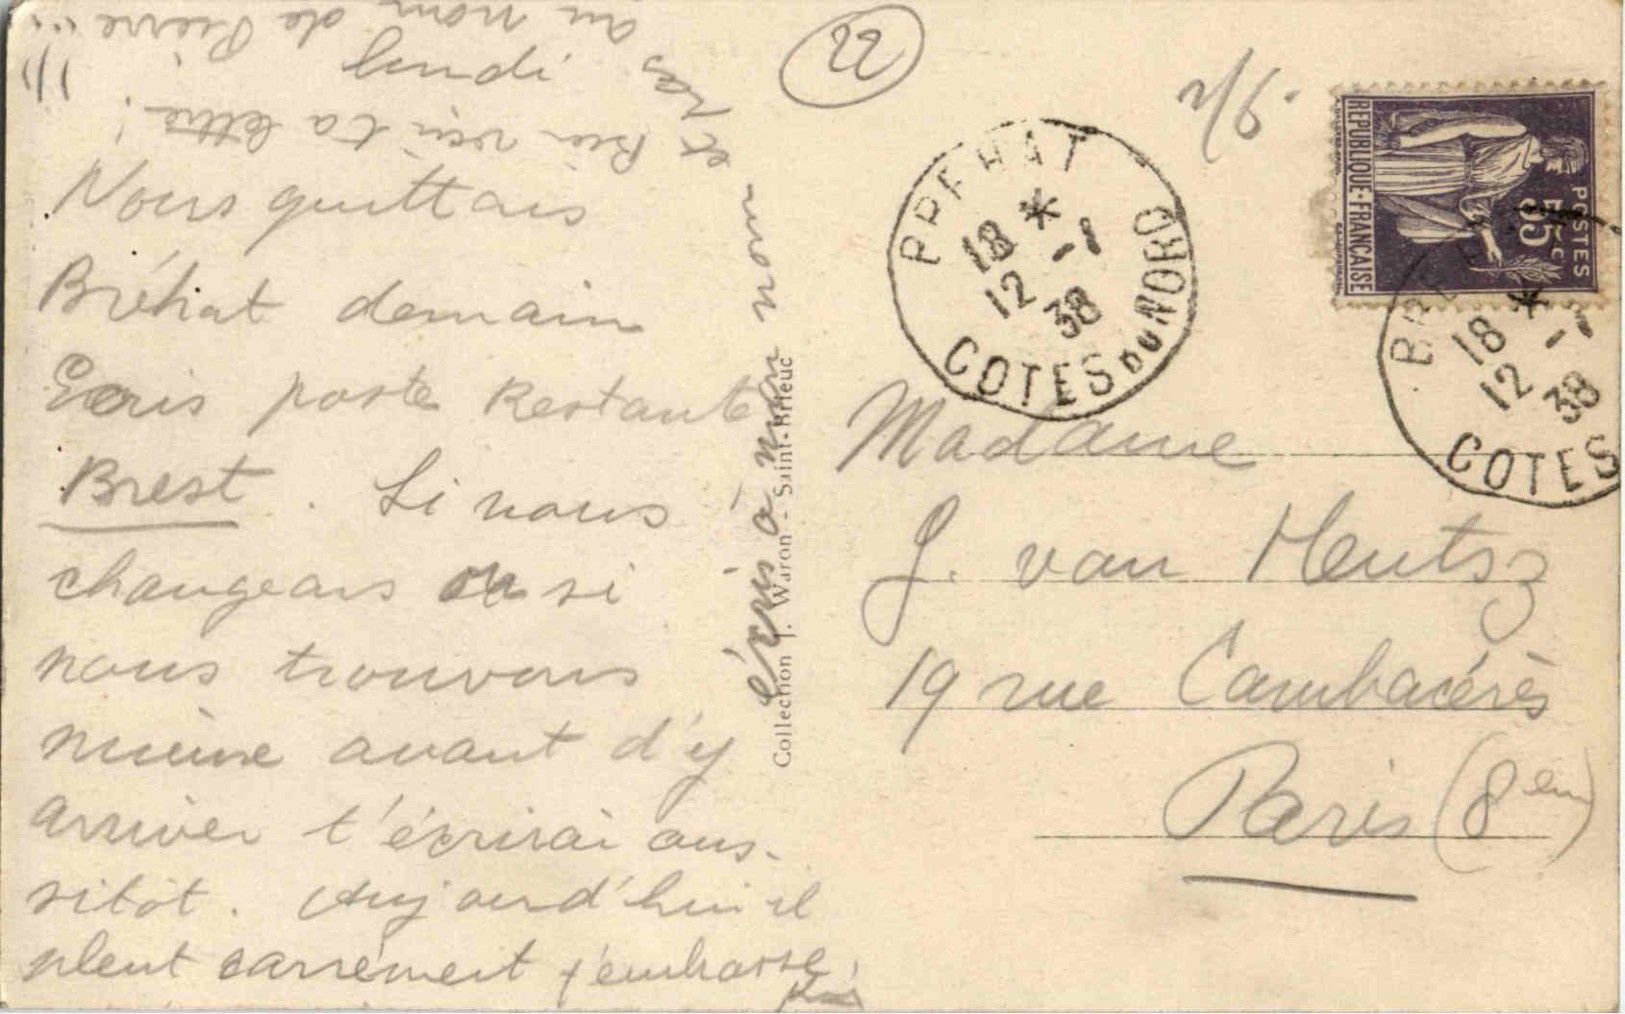 lundi
Nous quittons
Bréhat demain
Ecris poste Restante
Brest. Si nous
changeons ou si
nous trouvons
mieux avant d'y
arriver t'écrirai aus-
sitôt. Aujourd'hui il
pleut carrément j'embrasse
écris à mon nom
et pas
au nom de Pierre !!!
Bien reçu ta lettre !
Collection J. Waron - Saint-Brieuc
22
BREHAT
18 *
12 -1
38
COTES DU NORD
POSTES
65c
REPUBLIQUE-FRANÇAISE
BREHAT
18 *
12 -1
38
COTES
Madame
J. van Heutsz
19 rue Cambacérès
Paris (8em)